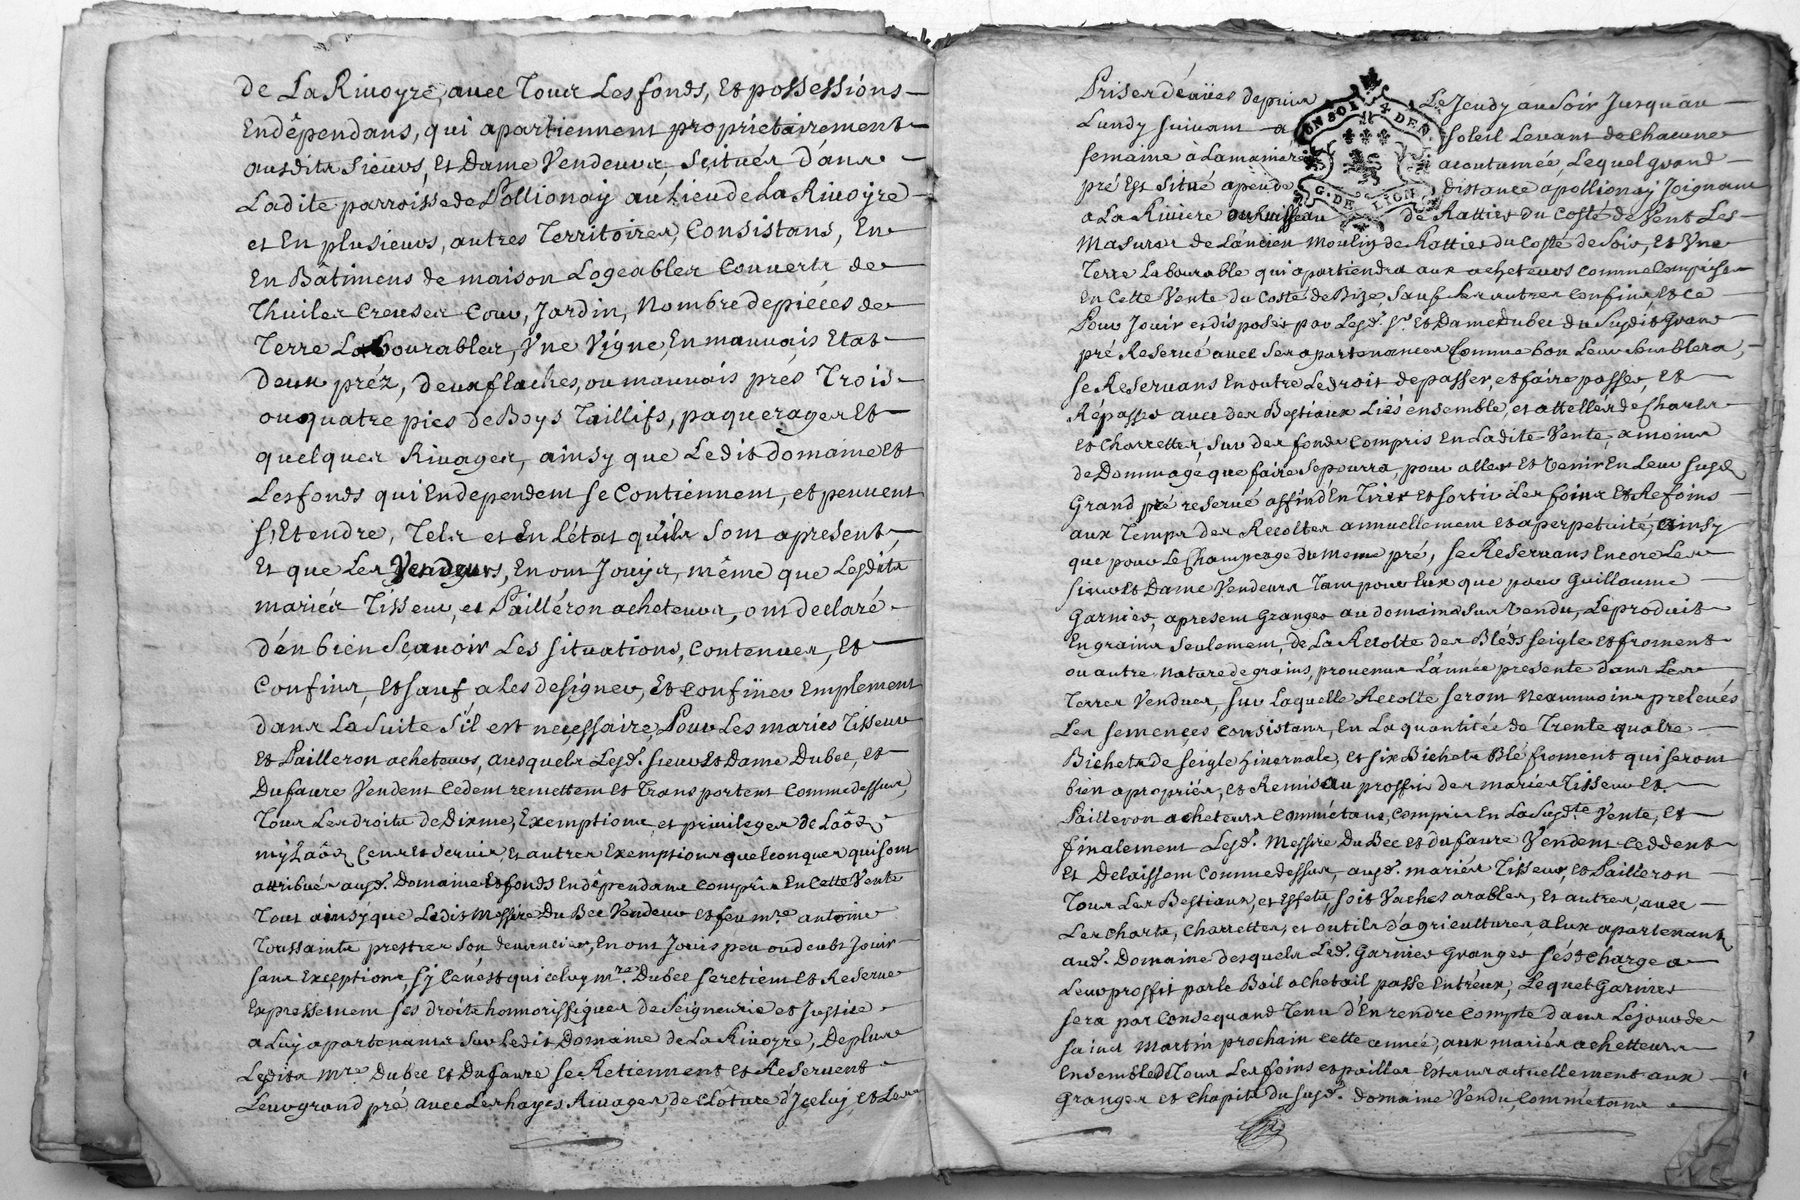 de La Riuoyre, auec Tous Les fonds, Et possessions
Endépendans, qui apartiennent proprietairement
ausdits Sieurs, Et Dame Vendeurs, scitués dans
Ladite parroisse de Pollionay au Lieu de La Riuoyre
et En plusieurs, autres Territoires, Consistans, En
En Bâtimens de maison Logeables Couverts de
Thuiles Creuses Cour, Jardin, Nombre de piéces de
Terre Labourables, Vne Vigne, En mauuais Etat
deux préz, deux flaches, ou mauuais prés Trois
ou quatre pies de Boys Taillifs, paquerages Et
quelques Riuages, ainsy que Ledit domaine Et
Les fonds qui En dependent se Contiennent, et peuuent
s'Etendre, Tels et En L'état qu'ils sont apresent,
Et que Les Vendeurs, En ont Jouÿs, même que Lesdits
mariés Tisseur, et Pailléron acheteurs, ont declaré
d'en bien Sçauoir Les situations, Contenues, Et
Confins, Et sauf a Les designer, Et confiner Emplement
dans La suite S'il est neçessaire, Pour Les mariés Tisseur
Et Pailleron acheteurs, ausquels Lesd. sieur Et Dame Dubec, Et
Dufaure Vendent Cedent remettent Et Transportent Comme dessus,
Tous Les droits de Dixme, Exemptions, et priuileges de Laôds
mÿ Laôds Cens Et Seruis, Et autres Exemptions quelconques qui sont
attribués ausd. Domaine Et fonds En dépendans Compris En Cette Vente
Tout ainsÿ que Ledit Messire Du Bec Vendeur et feu mre. antoine
Toussaints prestres son deuancier, En ont Jouis peu ou deubt Jouir
sans Exceptions, sÿ Ce n'est qui celuy mre. Dubec se retient Et Reserue
Expressement ses droits honnorissiques de Seigneurie et Justice
a Luÿ apartenants sur Ledit Domaine de La Riuoyre, De plus
Lesdits Mre. Dubec et Dufaure se Retiennent Et Reseruent
Leur grand pré auec Les hayes Riuages, de Clôture d'Jceluy, Et Les
Prises d'éaües depuis Le Jeudy au Soir Jusqu'au
Lundy suiuant a soleil Levant de Chacune
semaine à La maniere acoutumée, Lequel grand
pré Est situé apeu de distance a pollionay Joignant
a La Riuiere ou Ruisseau de Rattier du Costé de Vent Les
Masures de L'ancien moulin de Rattier du Costé de Soir, Et Vne
Terre Labourable qui apartiendra aux acheteurs comme Comprise
En Cette Vente du Costé de Bize, Sauf Ses autres Confins, Et Ce
Pour Jouir et disposer par Lesd. Sr. Et Dame Dubec du Susdit Grand
pré Reserué auec Ses apartenances Comme bon Leur Semblera,
se Reseruans En outre Le droit de passer, et faire passer, Et
Répasser auec des Bestiaux Liés ensemble, et attellés de Chars
Et Charrettes, Sur des fonds Compris En Ladite Vente, a moins
de Dommage que faire se pourra, pour aller Et Venir En Leur Susd.
Grand pré reserué affin d'En Tirer Et sortir Les foins Et Refoins
aux Temps des Recoltes annuellement Et aperpetuité, ainsy
que pour Le Champeage du meme pré, se Reseruans Encore Les
sieur Et Dame Vendeurs Tant pour Eux que pour Guillaume
Garnier, apresent Granger au domaine sus Vendu, Le produit
En grains Seulement, de La Recolte des Blés seigle et froment
ou autre Nature de grains, prouenus L'année presente dans Les
Terres Vendues, sur Laquelle Recolte seront Neanmoins preleués
Les semençes Consistans, En La quantitée de Trente quatre
Bichets de seigle hiuernale, et six Bichets Blé froment qui seront
bien apropriés, et Remis au proffit des mariés Tisseur Et
Pailleron acheteurs Comm'étans compris En La Susd.te Vente, Et
finalement Lesd. Messire Du Bec et dufaure Vendent Ceddent
Et Delaissent Comme dessus, ausd. mariés Tisseur, Et Pailleron
Tous Les Bestiaux, et Effets, soit Vaches arables, Et autres, auec
Les Charts, Charrettes, et outils d'agricultures, a Eux apartenant
aud. Domaine desquels Led. Garnier Granger s'est Chargé a
Leur proffit par le Bail achetail passé Entréux, Lequel Garnier
sera par Consequand Tenu d'En rendre Compte dans Le Jour de
saint Martin prochain Cette année, aux mariés achetteurs
Ensemble de Tous Les foins et pailles Estans actuellement aux
Granges et Chapits du susd. Domaine Vendu, Comm'étans
ON SOL 4 DEN
G. DE LION